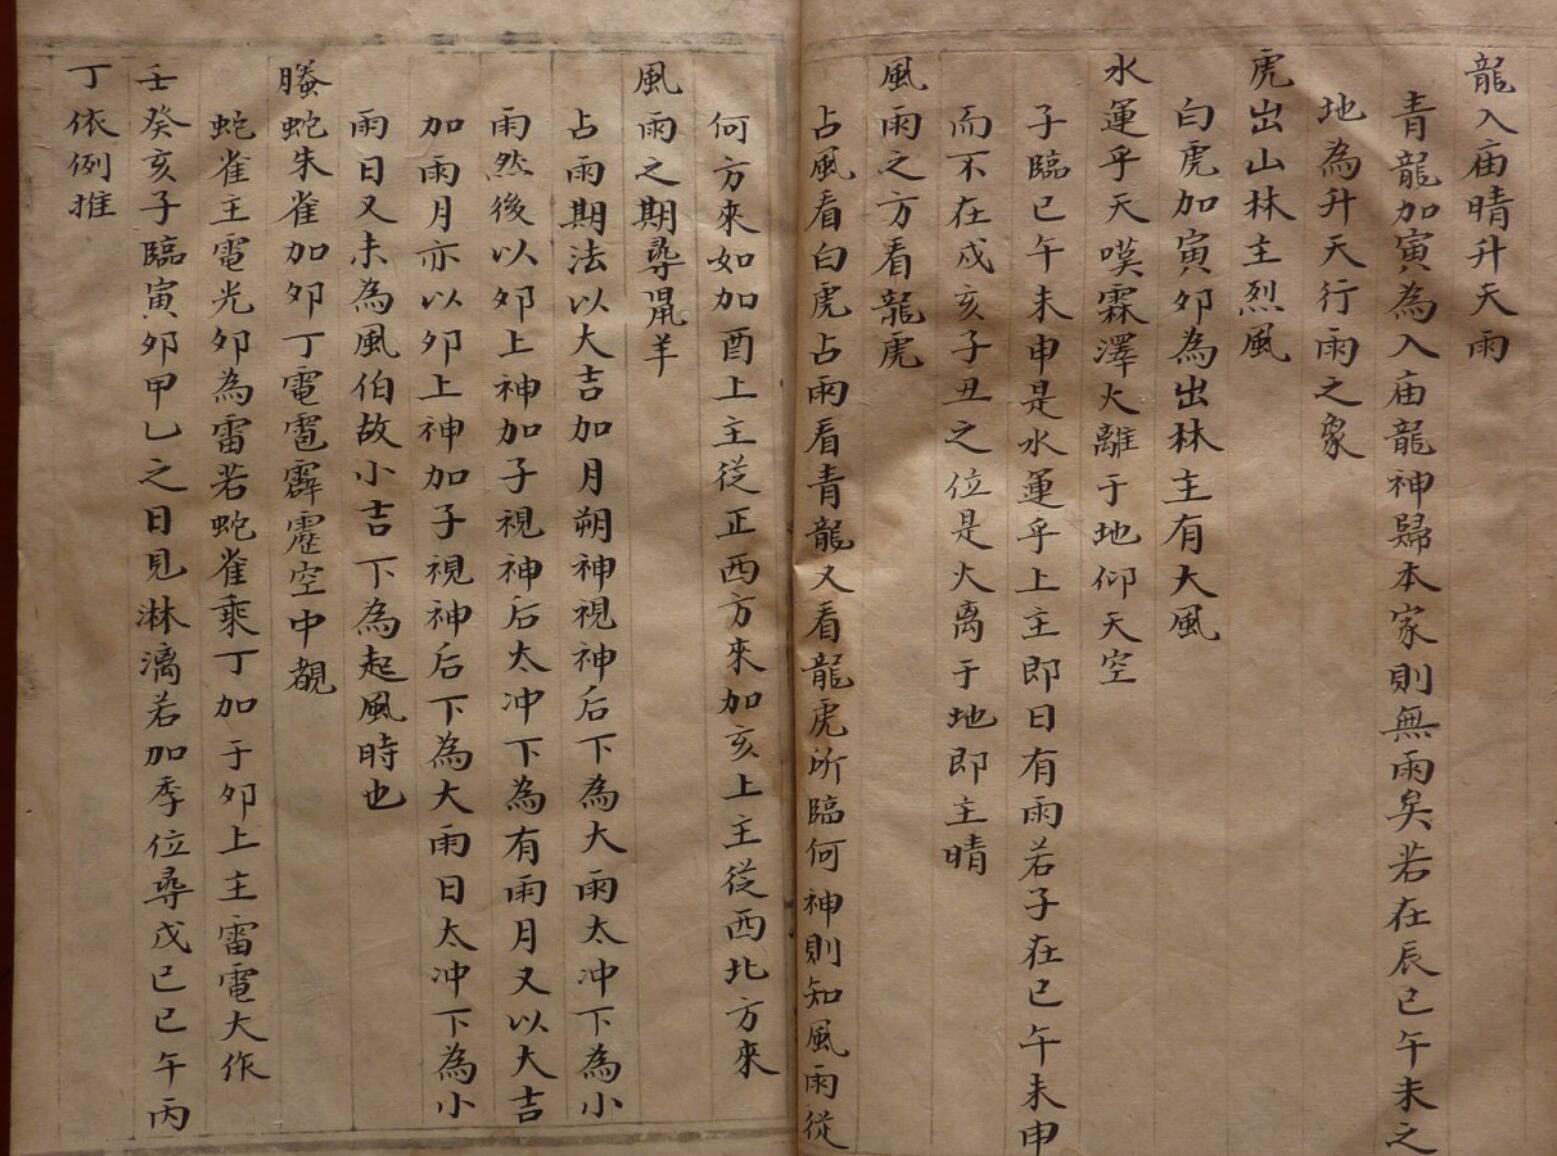 龍入庙晴升天雨
青龍加寅為入庙龍神歸本家則無雨矣若在辰巳午未之
地為升天行雨之象
虎出山林主烈風
白虎加寅夘為出林主有大風
水運乎天嘆霖澤火離于地仰天空
子臨巳午未申是水運乎上主即日有雨若子在巳午未申
而不在戌亥子丑之位是火离于地即主晴
風雨之方看龍虎
占風看白虎占雨看青龍又看龍虎所臨何神則知風雨從
何方來如加酉上主從正西方來加亥上主從西北方來
風雨之期尋鼠羊
占雨期法以大吉加月朔神視神后下為大雨太冲下為小
雨然後以夘上神加子視神后太冲下為有雨月又以大吉
加雨月亦以夘上神加子視神后下為大雨日太冲下為小
雨日又未為風伯故小吉下為起風時也
螣蛇朱雀加夘丁電雹霹靂空中覩
蛇雀主電光夘為雷若蛇雀乘丁加于夘上主雷電大作
壬癸亥子臨寅夘甲乙之日見淋漓若加季位尋戊己巳午丙
丁依例推